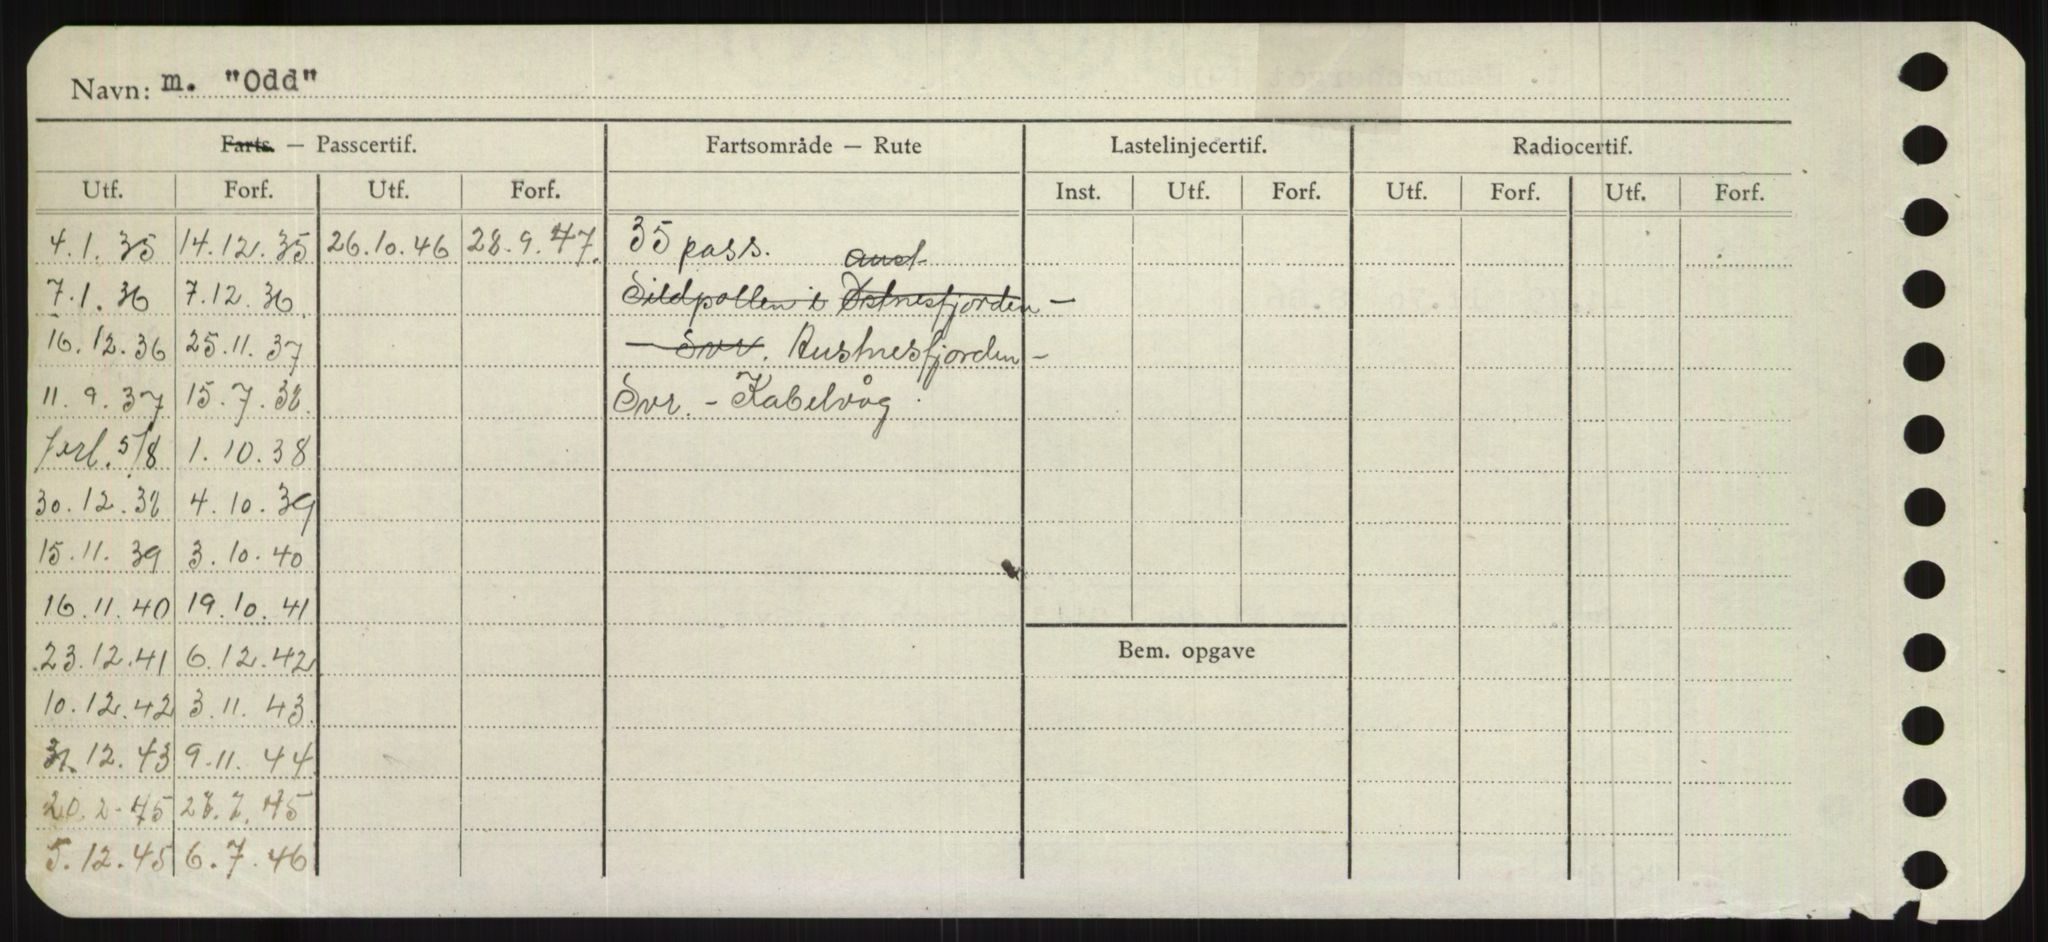 Navn: m. "Odd"
Farts. — Passcertif. Fartsområde — Rute Lastelinjecertif. Radiocertif.
Utf. Forf. Utf. Forf. Inst. Utf. Forf. Utf. Forf. Utf. Forf.
4.1.35 14.12.35 26.10.46 28.9.47. 35 pass.
Aust
7.1.36 7.12.36 Sildpollen i Østnesfjorden –
16.12.36 25.11.37 — Svr. Austnesfjorden –
11.9.37 15.7.38 Svr. – Kabelvåg
forl. 5/8 1.10.38
30.12.38 4.10.39
15.11.39 3.10.40
16.11.40 19.10.41
23.12.41 6.12.42
Bem. opgave
10.12.42 3.11.43
12.43 9.11.44
20.2.45 28.7.45
5.12.45 6.7.46